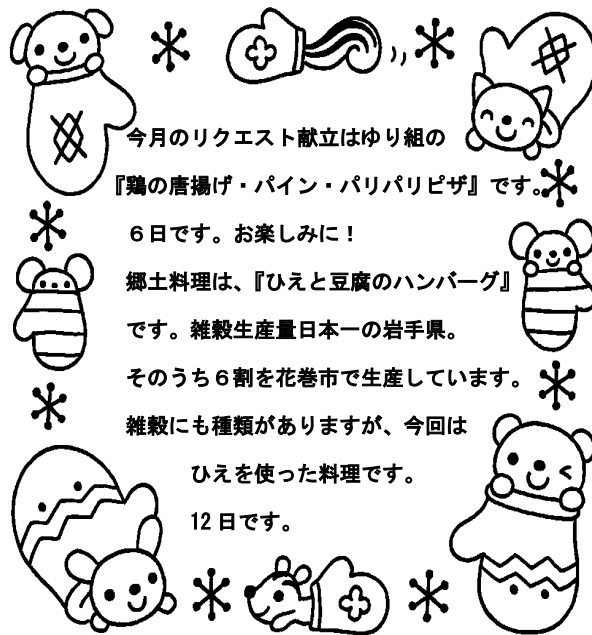 今月のリクエスト献立はゆり組の
『鶏の唐揚げ・パイン・パリパリピザ』です。
６日です。お楽しみに！
郷土料理は、『ひえと豆腐のハンバーグ』
です。雑穀生産量日本一の岩手県。
そのうち６割を花巻市で生産しています。
雑穀にも種類がありますが、今回は
ひえを使った料理です。
12日です。